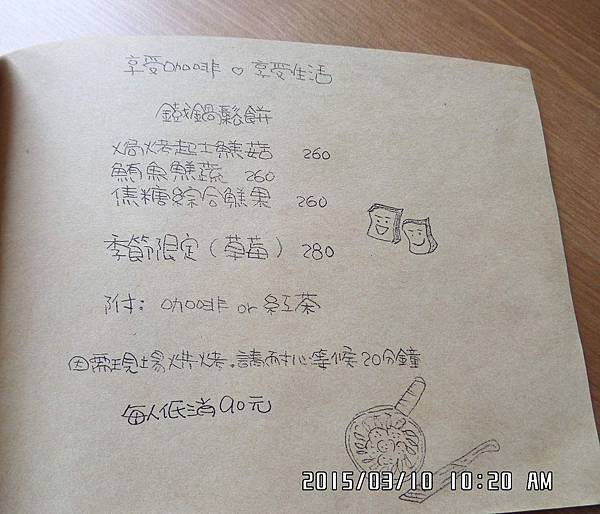 享受咖啡 ♡ 享受生活
鐵鍋鬆餅
焗烤起士鮮菇 260
鮪魚鮮蔬 260
焦糖綜合鮮果 260
季節限定(草莓) 280
附: 咖啡 or 紅茶
因需現場烘烤,請耐心等候20分鐘
每人低消90元
2015/03/10 10:20 AM